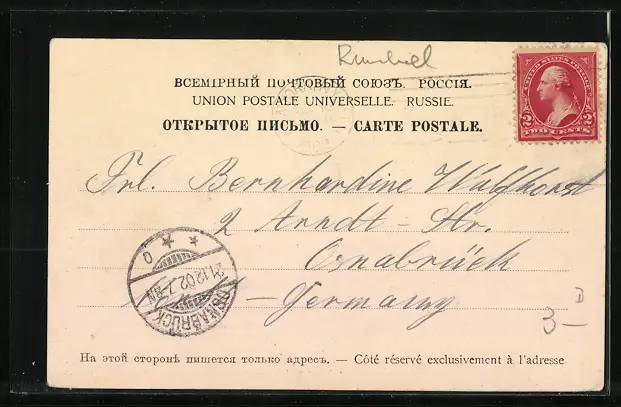 ВСЕМІРНЫЙ ПОЧТОВЫЙ СОЮЗЪ. РОССІЯ.
UNION POSTALE UNIVERSELLE. RUSSIE.
ОТКРЫТОЕ ПИСЬМО. — CARTE POSTALE.
UNITED STATES POSTAGE
2 2
TWO CENTS
Frl. Bernhardine Wulfhorst
2 Arndt-Str.
Osnabrück
Germany
OSNABRÜCK
21.12.02.7-8N.
3 —
На этой сторонѣ пишется только адресъ. — Côté réservé exclusivement à l'adresse